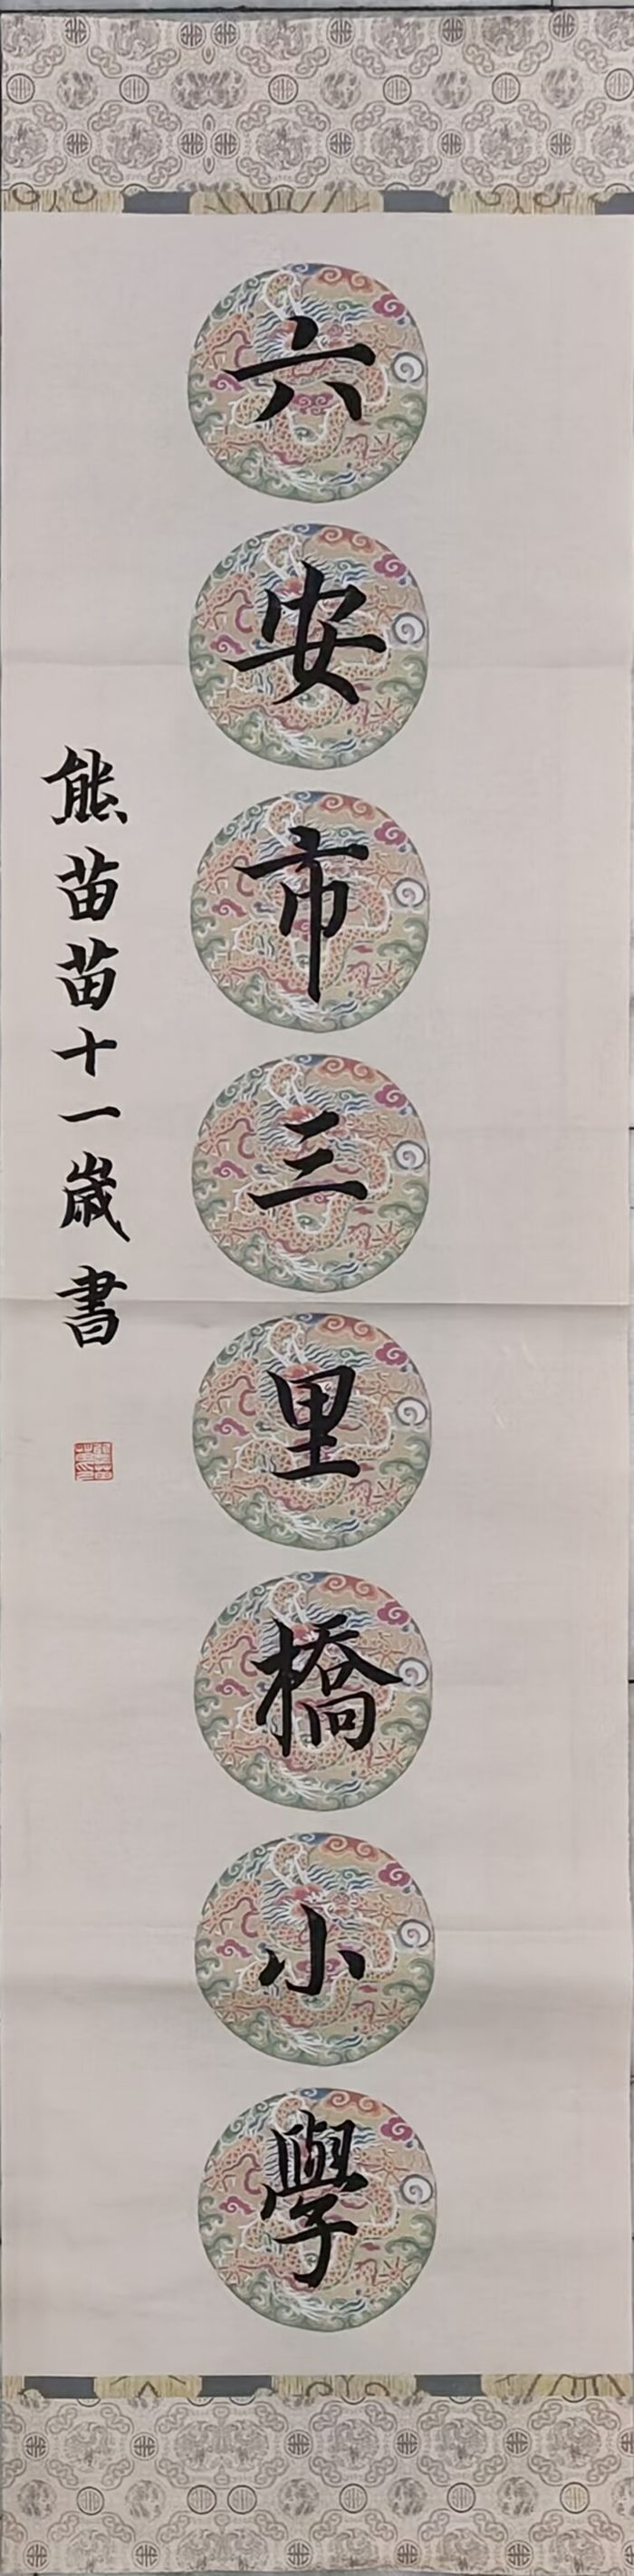 六安市三里橋小學
熊苗苗十一歳書